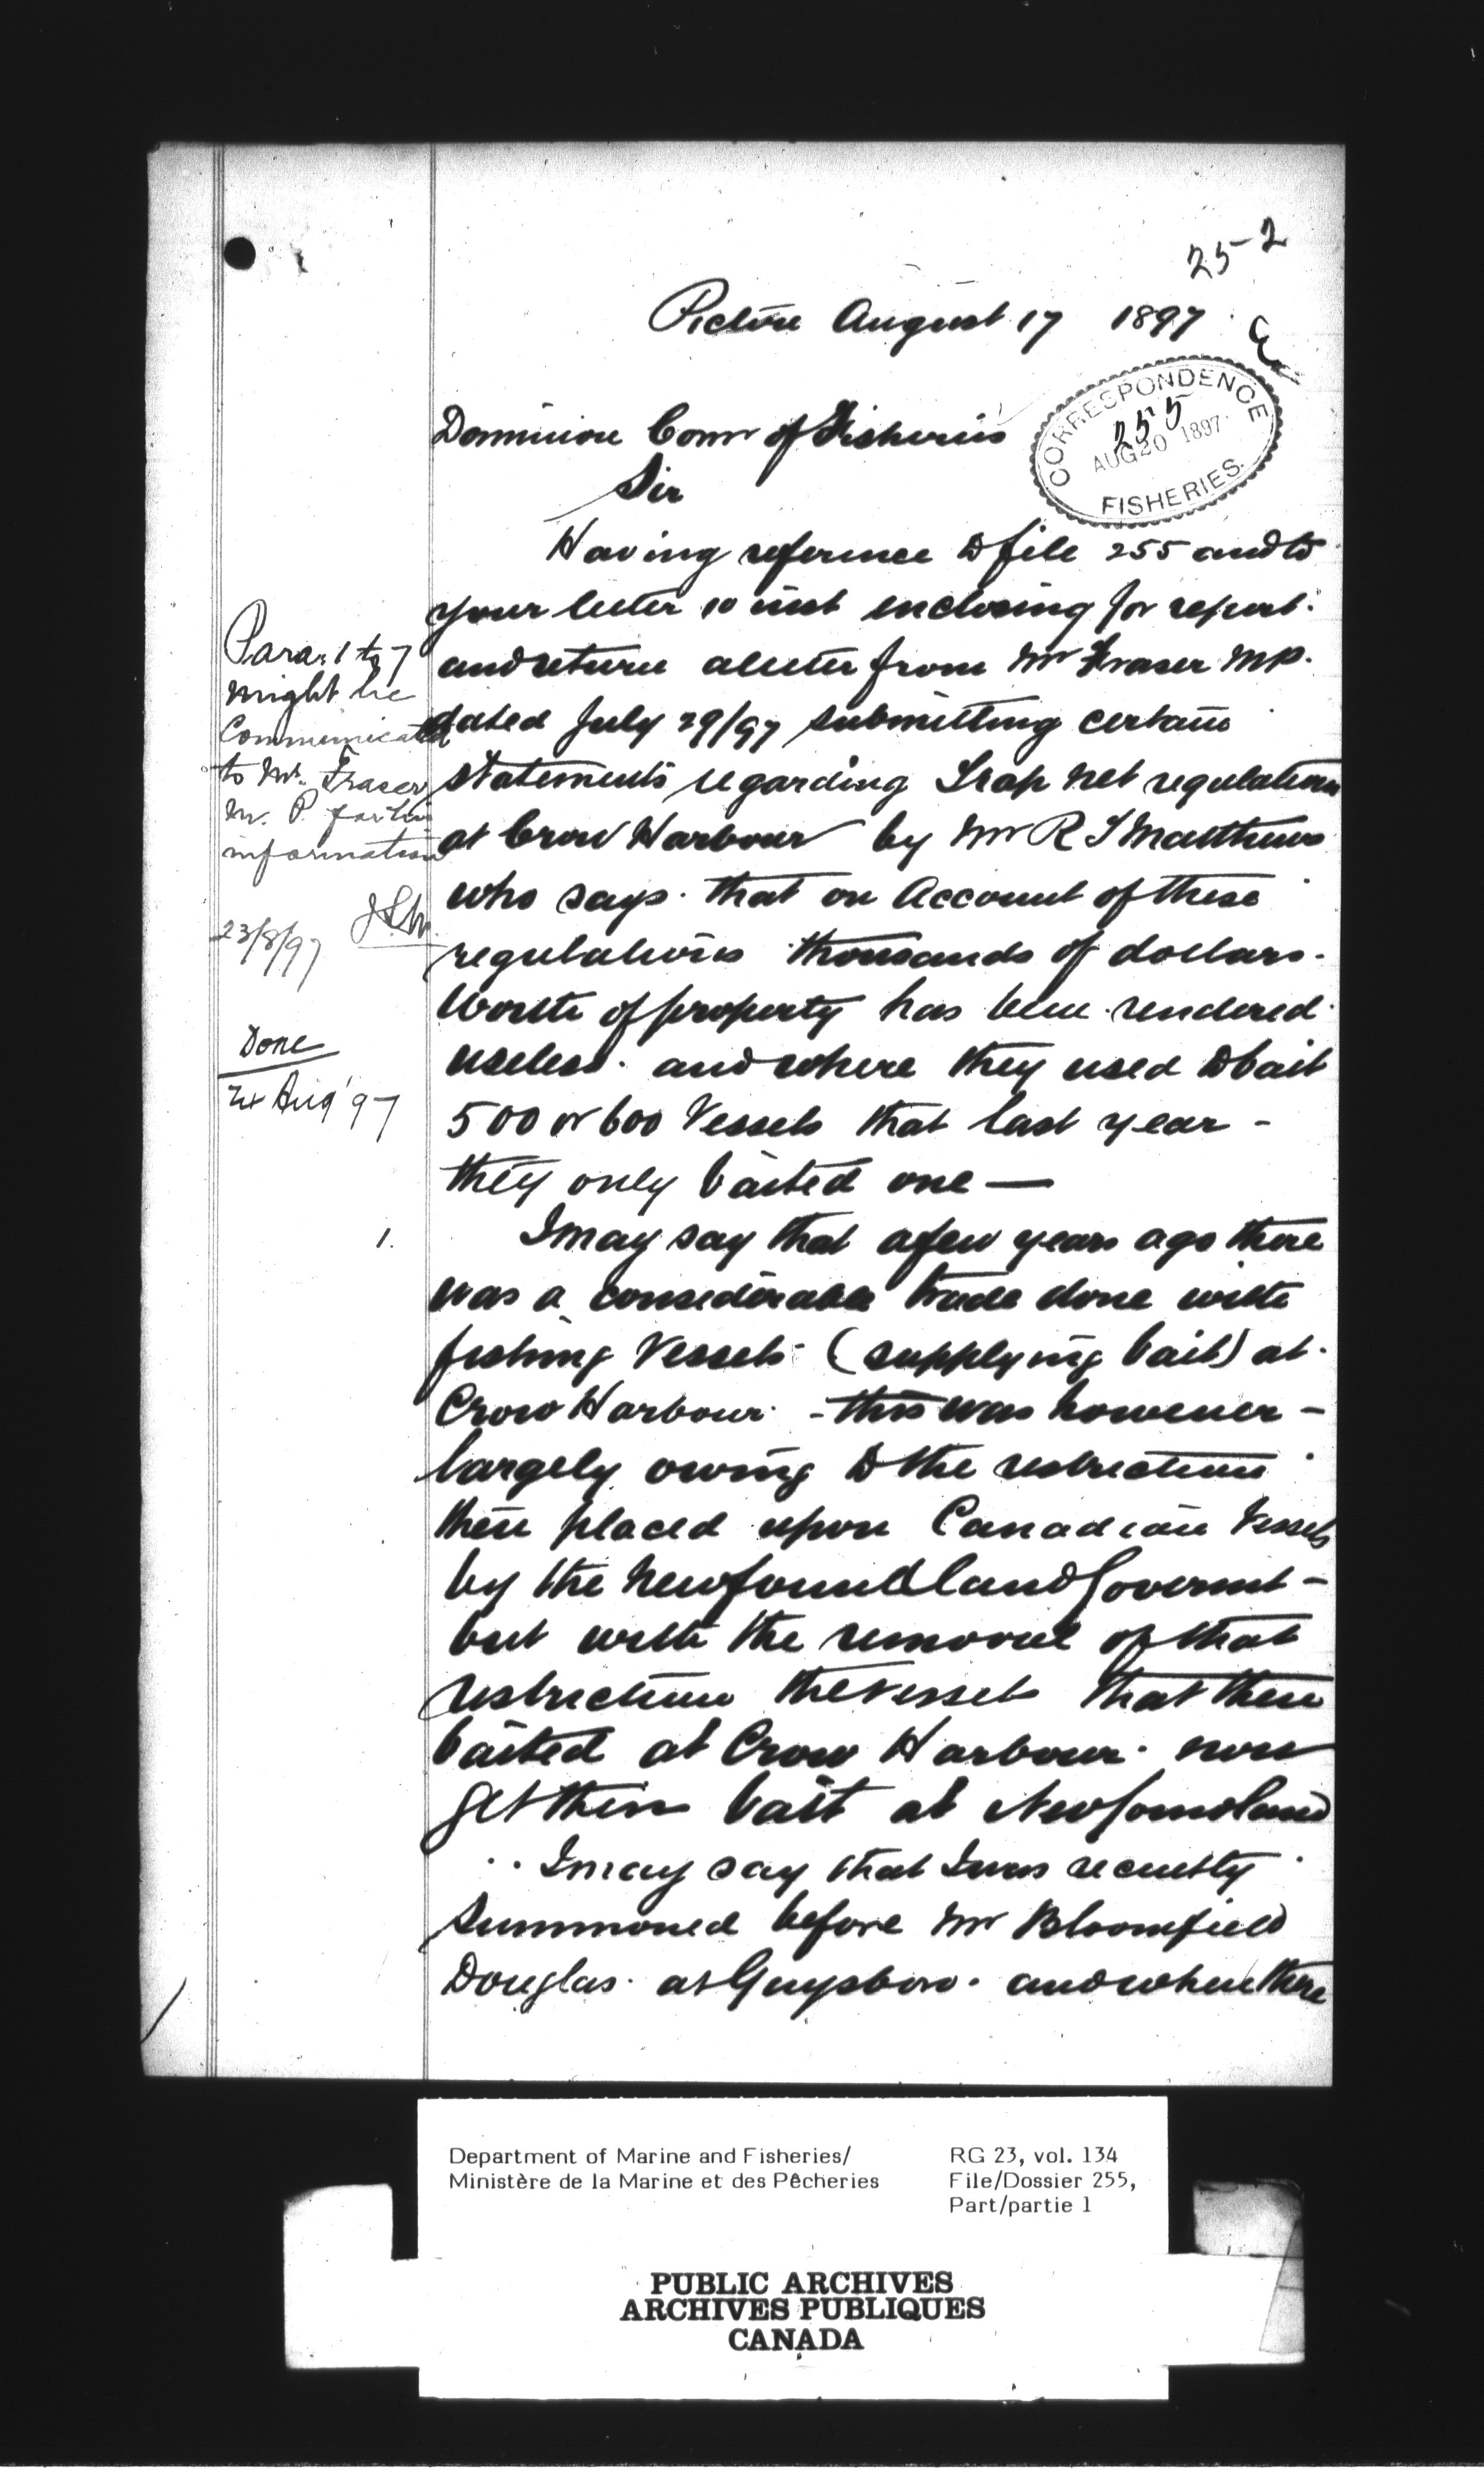 25-2
Pictou August 17 1897
CORRESPONDENCE
255
AUG 20 1897
FISHERIES.
Dominion Comr of Fisheries
Sir
Having reference to file 255 and to
your letter 10 inst enclosing for report
and return a letter from Mr Fraser MP.
dated July 29/97 submitting certain
statements regarding Trap net regulations
at Crow Harbour by Mr R S Matthews
who says that on account of these
regulations thousands of dollars
worth of property has been rendered
useless. and where they used to bait
500 or 600 Vessels that last year -
they only baited one —
Para. 1 to 7
might be
Communicated
to Mr. Fraser
M. P. for his
information
23/8/97
Done
24 Aug '97
1.
I may say that a few years ago there
was a considerable trade done with
fishing Vessels (supplying bait) at
Crow Harbour - this was however -
largely owing to the restrictions
then placed upon Canadian Vessels
by the Newfoundland Governt -
but with the removal of that
restriction the vessels that then
baited at Crow Harbour now
get their bait at Newfoundland
I may say that I was recently
summoned before Mr Bloomfield
Douglas at Guysboro. and when there
Department of Marine and Fisheries/
Ministère de la Marine et des Pêcheries
RG 23, vol. 134
File/Dossier 255,
Part/partie 1
PUBLIC ARCHIVES
ARCHIVES PUBLIQUES
CANADA